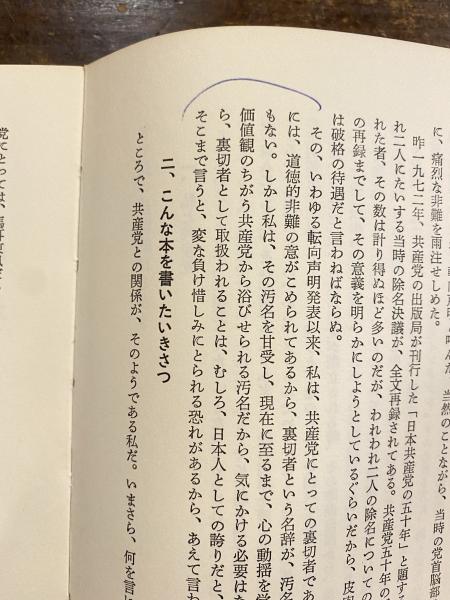 に、痛烈な非難を雨注せしめた。　当然のことながら、当時の党首脳部
昨一九七二年、共産党の出版局が刊行した「日本共産党の五十年」と題する
れ二人にたいする当時の除名決議が、全文再録されてある。共産党五十年の
れた者、その数は計り得ぬほど多いのだが、われわれ二人の除名についての
の再録までして、その意義を明らかにしようとしているぐらいだから、皮肉
は破格の待遇だと言わねばならぬ。
その、いわゆる転向声明発表以来、私は、共産党にとっての裏切者であ
には、道徳的非難の意がこめられてあるから、裏切者という名辞が、汚名
もない。しかし私は、その汚名を甘受し、現在に至るまで、心の動揺を覚
価値観のちがう共産党から浴びせられる汚名だから、気にかける必要はな
ら、裏切者として取扱われることは、むしろ、日本人としての誇りだと、
そこまで言うと、変な負け惜しみにとられる恐れがあるから、あえて言わ
二、こんな本を書いたいきさつ
ところで、共産党との関係が、そのようである私だ。いまさら、何を言に
党にとっては、